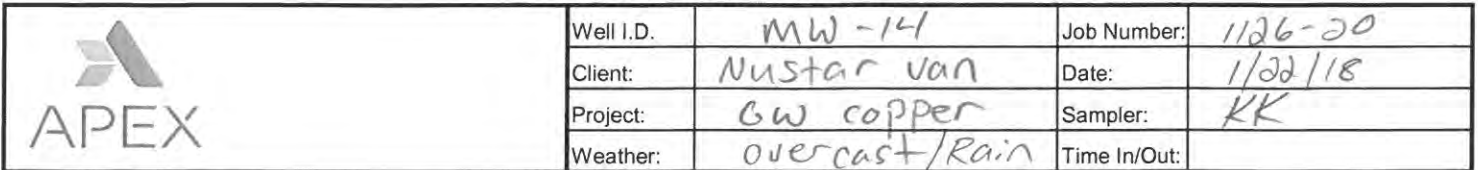 APEX
Well I.D. MW-14 Job Number: 1126-20
Client: Nustar Van Date: 1/22/18
Project: GW copper Sampler: KK
Weather: Overcast/Rain Time In/Out: